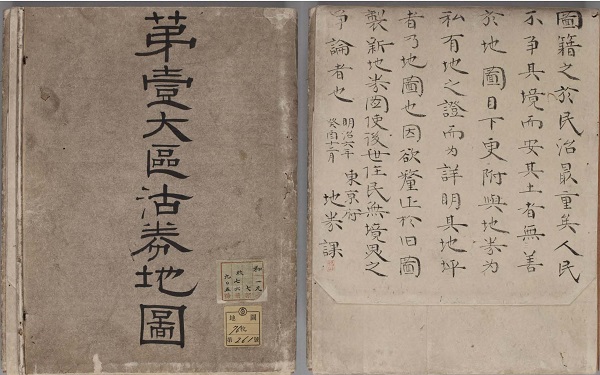 苐壹大區沽券地圖
地圖
第261號
圖籍之於民治最重矣人民
不爭其境而安其土者無善
於地圖目下更附與地券为
私有地之證而为詳明其地坪
者乃地圖也因欲釐正於旧圖
製新地券圖使後世住民無境界之
爭論者也
明治六年
癸酉十二月
東京府
地券課